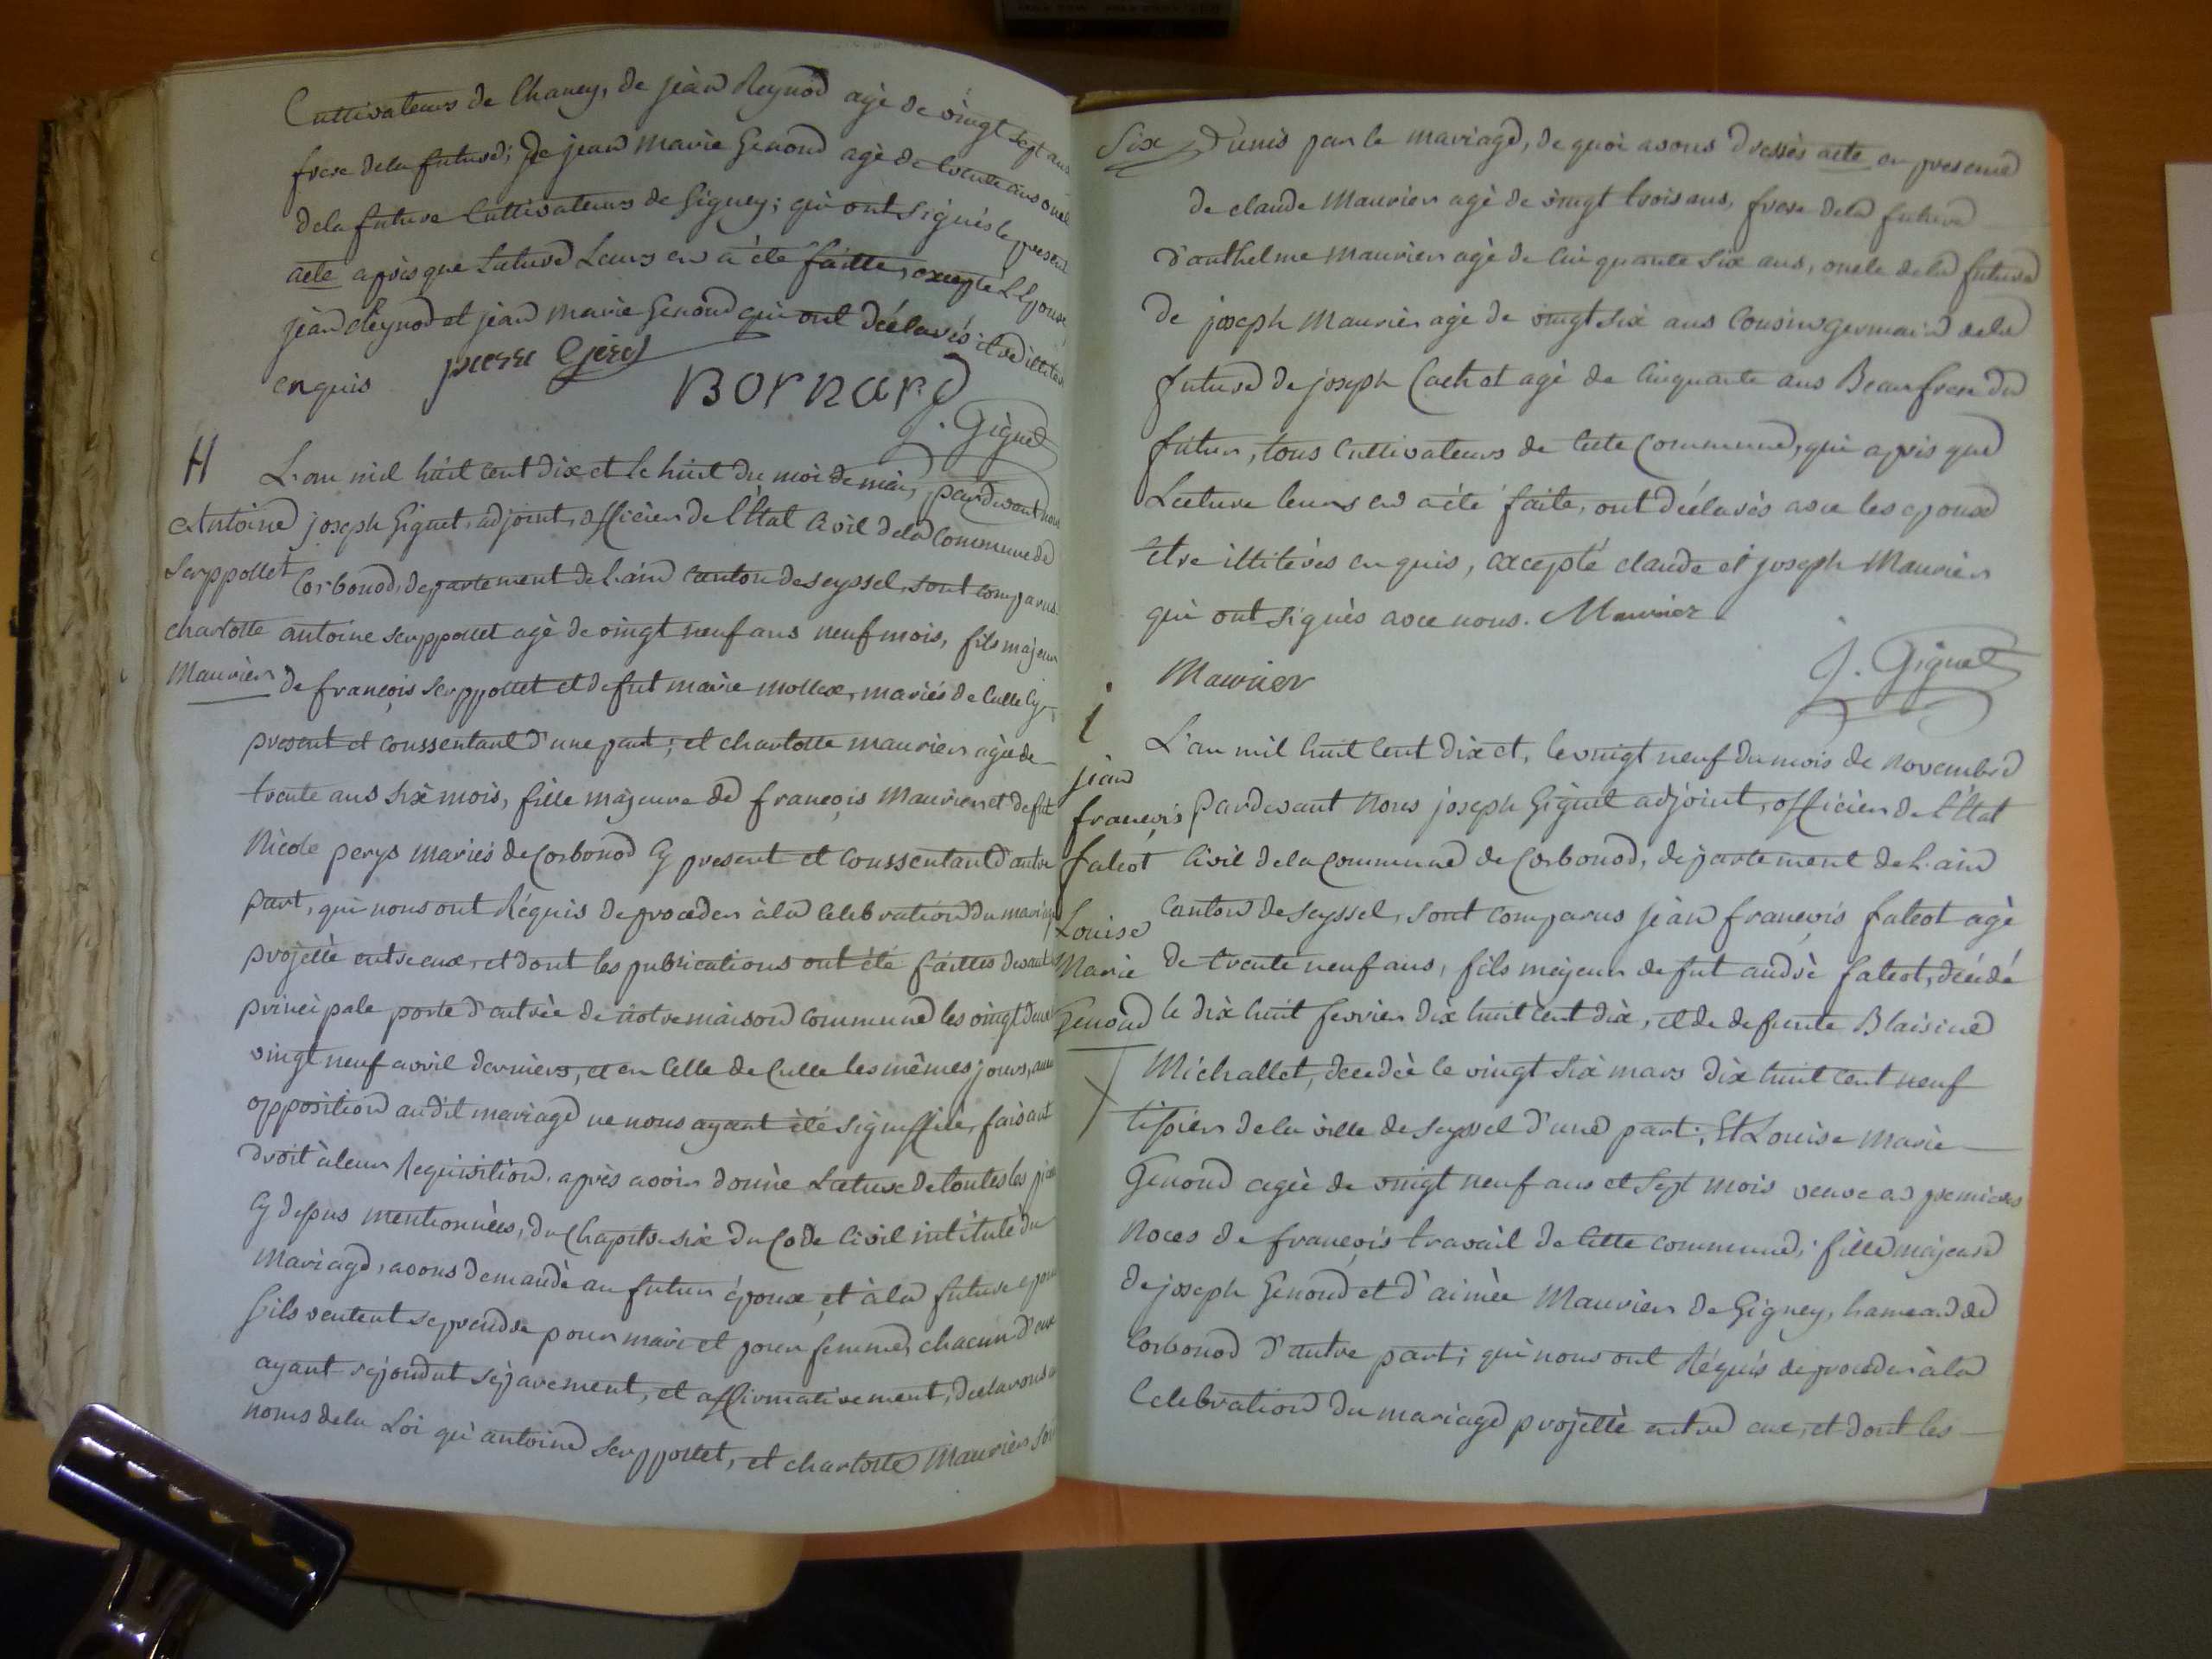 Cultivateurs de Chaney, de jean Reynod agè de vingt sept ans
frere dela future; De jean marie Genoud agè de trente ans oncle
dela future Cultivateurs de Gigney; qui ont signés le present
acte après que Lature Leurs en a èté faitte, excepté L'Epouse
jean Reynod et jean marie Genoud qui ont déclarés etre illiteres
enquis
pierre Gjerd
BORNARD
J. Giguet
H
L'an mil huit cent dix et le huit du moi de mai, pardevant nous
Antoine
joseph Giguet, adjoint, officier de l'Etat Civil dela Commune de
Serppollet
Corbonod, departement de L'ain canton de seyssel, sont comparus
charlotte
antoine serppollet agè de vingt neuf ans neuf mois, fils majeur
Maurier
de françois serppollet et de fut marie mollex, mariés de Culle Cy
present et conssentant d'une part; et charlotte maurier agèe de
trente ans six mois, fille majeure de françois Maurier et de fut
Nicole perys mariés de Corbonod Cy present et Conssentant d'autre
part, qui nous ont Réquis de proceder àla Celebration du mariage
projettè entre eux, et dont les publications ont èté faittes devant la
principale porte d'entrèe de notre maison commune les vingt deux
vingt neuf avril derniers, et en Celle de Culle les mêmes jours, aucune
opposition audit mariage ne nous ayant èté signiffiée, faisant
droit àleur Requisition, après avoir donnè Lature de toutes les pieces
Cy dessus mentionnèes, du Chapitre six du Code Civil intitulè du
Mariage, avons demandè au futur èpoux, et àla future epouse
s'ils veulent se prendre pour mari et pour femme, chacun d'eux
ayant repondut separement, et affirmativement, declarons au
noms dela Loi qu'antoine serppollet, et charlotte Maurier sont
six d'unis par le mariage, de quoi avons dressés acte en presence
de claude Maurier agè de vingt trois ans, frere dela future
d'anthelme maurier agè de Cinquante six ans, oncle dela future
de joseph Maurier agè de vingt six ans Cousin germain dela
future de joseph Cachat agè de Cinquante ans Beaufrere du
futur, tous Cultivateurs de Cette Commune, qui après que
Lecture leurs en a èté faite, ont déclarés avec les epoux
etre illitérés enquis, excepté claude et joseph Maurier
qui ont signés avec nous. Maurier
Maurier
J. Giguet
i
L'an mil huit Cent dix et, le vingt neuf du mois de Novembre
jean
françois
pardevant Nous joseph Giguet adjoint, officier de L'Etat
falcot
Civil dela Commune de Corbonod, departement de L'ain
Louise
Canton de seyssel, sont comparus jean françois falcot agè
Marie
de trente neuf ans, fils majeur de fut andrè falcot, décédé
Genoud
le dix huit fevrier dix huit cent dix, et de defunte Blaisine
Michallet, decedèe le vingt six mars dix huit cent neuf
tissier dela ville de seyssel d'une part; Et Louise Marie
Genoud agèe de vingt neuf ans et sept mois veuve en premieres
Noces de françois travail de Cette commune, fille majeure
de joseph Genoud et d'aimèe Maurier de Gigney, hameau de
Corbonod d'autre part; qui nous ont Réquis de proceder àla
Celebration du mariage projettè entre eux, et dont les